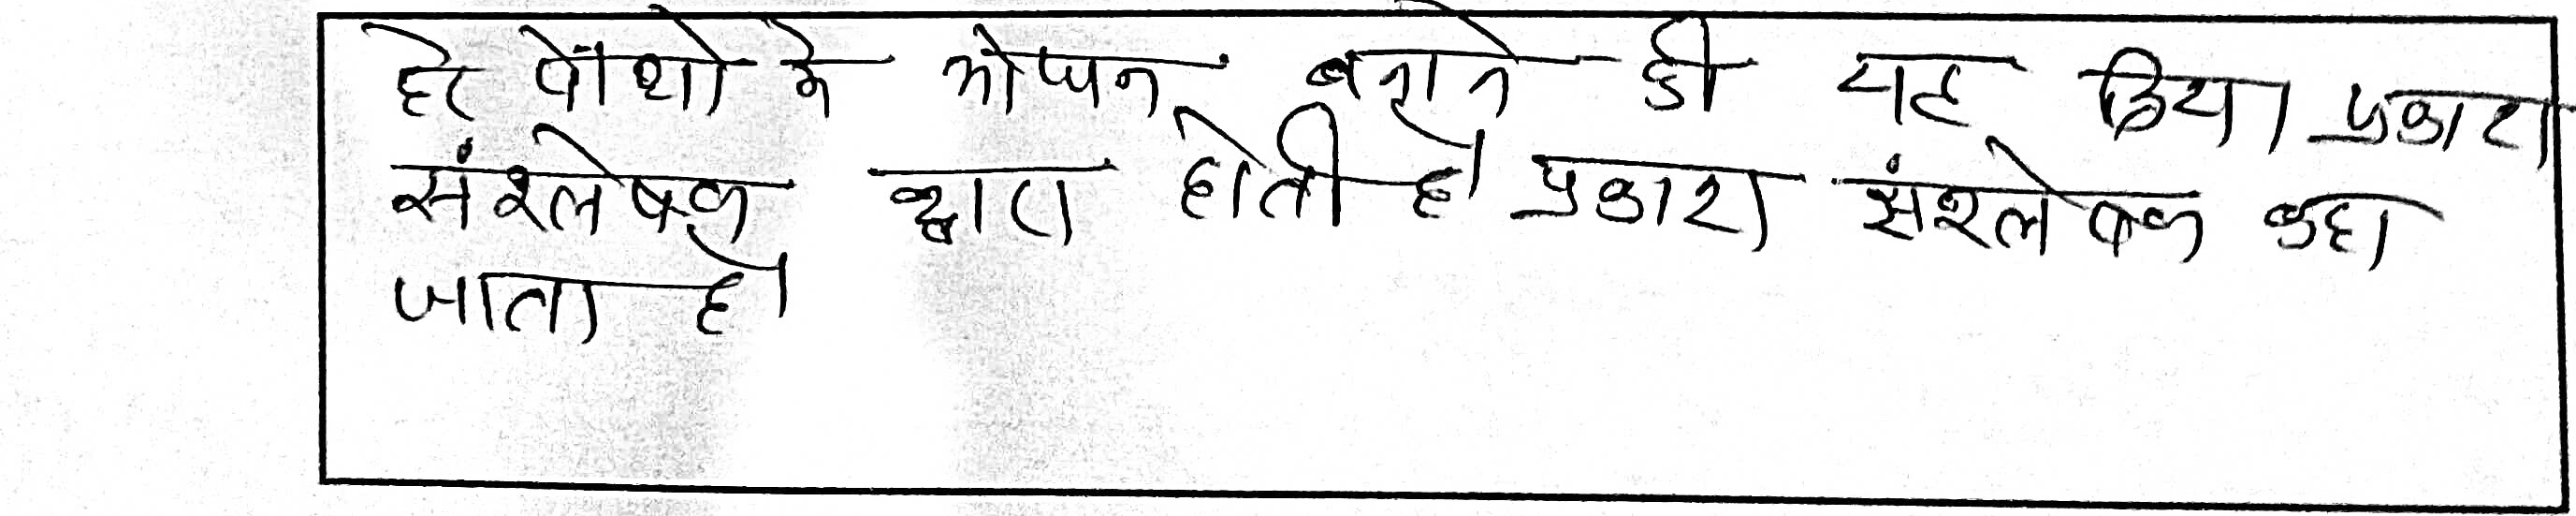 हरे पौंधो के भोपन बनाने की यह क्रिया प्रकाश
संश्लेषण द्वारा होती है प्रकाश संश्लेषण कहा
जाता है